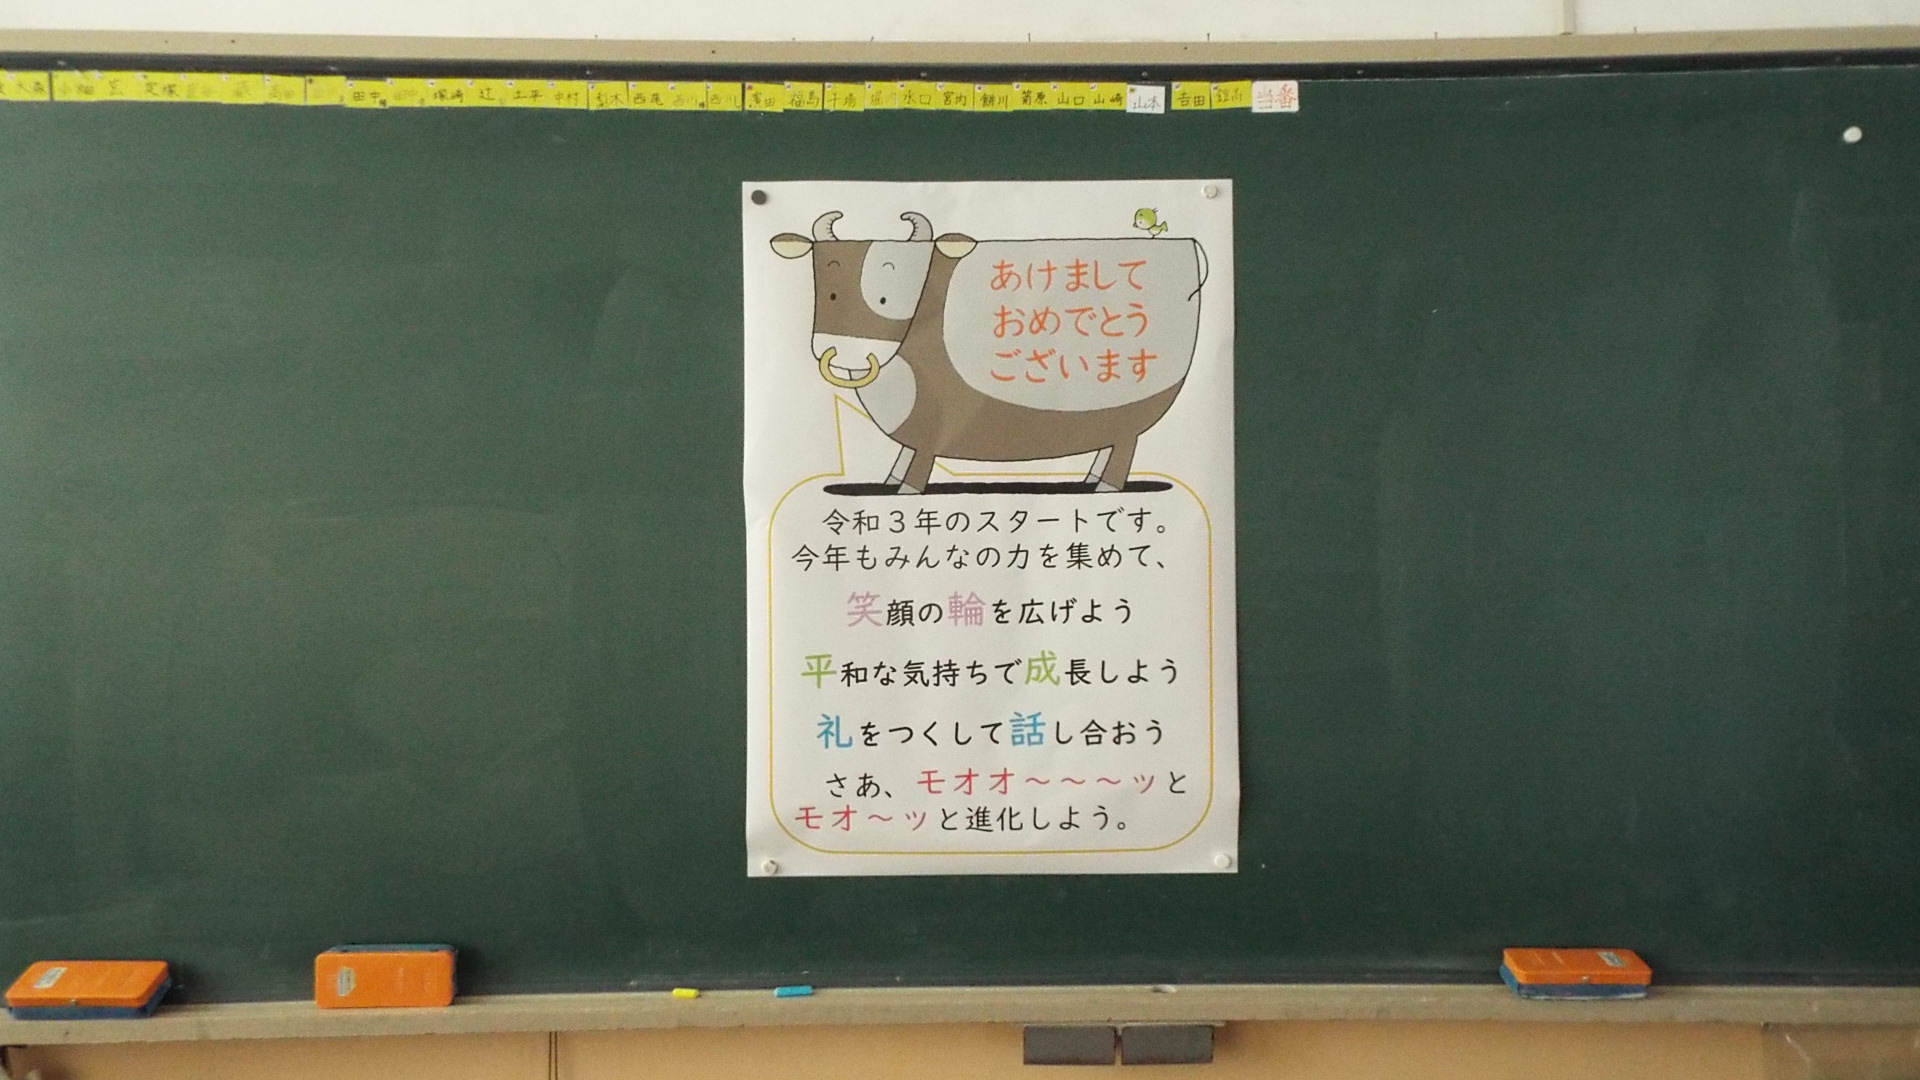 大森
定塚
田中
塚崎
辻
土平
中村
梨木
西尾
西川
西川
濱田
福島
干場
堀内
水口
宮内
餅川
箭原
山口
山崎
山本
吉田
当番
あけまして
おめでとう
ございます
令和3年のスタートです。
今年もみんなの力を集めて、
笑顔の輪を広げよう
平和な気持ちで成長しよう
礼をつくして話し合おう
さあ、モオオ～～～ッと
モオ～ッと進化しよう。